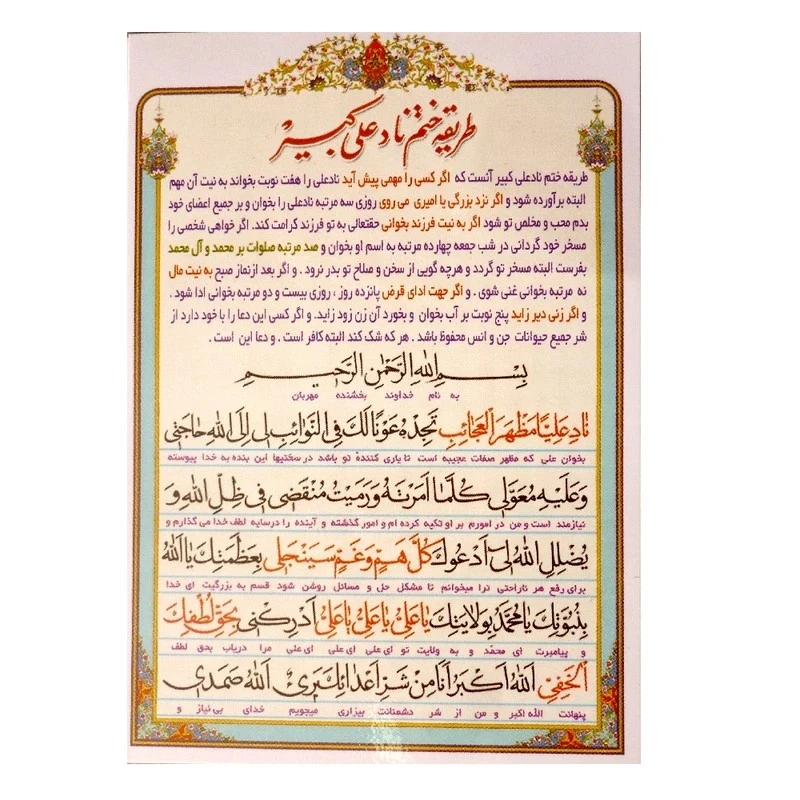 طریقه ختم ناد علی کبیر
طریقه ختم نادعلی کبیر آنست که اگر کسی را مهمی پیش آید نادعلی را هفت نوبت بخواند به نیت آن مهم
البته برآورده شود و اگر نزد بزرگی یا امیری می روی روزی سه مرتبه نادعلی را بخوان و بر جمیع اعضای خود
بدم محب و مخلص تو شود اگر به نیت فرزند بخوانی حقتعالی به تو فرزند کرامت کند. اگر خواهی شخصی را
مسخر خود گردانی در شب جمعه چهارده مرتبه به اسم او بخوان و صد مرتبه صلوات بر محمد و آل محمد
بفرست البته مسخر تو گردد و هرچه گویی از سخن و صلاح تو بدر نرود . و اگر بعد ازنماز صبح به نیت مال
نه مرتبه بخوانی غنی شوی . و اگر جهت ادای قرض پانزده روز ، روزی بیست و دو مرتبه بخوانی ادا شود .
و اگر زنی دیر زاید پنج نوبت بر آب بخوان و بخورد آن زن زود زاید. و اگر کسی این دعا را با خود دارد از
شر جمیع حیوانات جن و انس محفوظ باشد . هر که شک کند البته کافر است . و دعا این است .
بِسْمِ اللهِ الرَّحْمٰنِ الرَّحیمِ
به نام خداوند بخشنده مهربان
نادِ عَلِیًّا مَظْهَرَ الْعَجائِبِ تَجِدْهُ عَوْنًا لَكَ فِی النَّوائِبِ لی اِلَی اللهِ حاجَتی
بخوان علی که مظهر صفات عجیبه است تا یاری کنندهٔ تو باشد در سختیها این بنده به خدا پیوسته
وَ عَلَیْهِ مُعَوَّلی کُلَّما اَمَرْتَهُ وَ رَمَیْتُ مُنْقَضی فی ظِلِّ اللهِ وَ
نیازمند است و من در امورم بر او تکیه کرده ام و امور گذشته و آینده را درسایه لطف خدا می گذارم و
یُضْلِلِ اللهُ لی اَدْعُوكَ کُلَّ هَمٍّ وَ غَمٍّ سَیَنْجَلی بِعَظَمَتِكَ یا اَللهُ
برای رفع هر ناراحتی ترا میخوانم تا مشکل حل و مسائل روشن شود قسم به بزرگیت ای خدا
بِنُبُوَّتِكَ یا مُحَمَّدُ بِوِلایَتِكَ یا عَلِیُّ یا عَلِیُّ یا عَلِیُّ اَدْرِکْنی بِحَقِّ لُطْفِكَ
و پیامبرت ای محمّد و به ولایت تو ای علی ای علی ای علی مرا دریاب بحق لطف
الْخَفِیِّ اَللهُ اَکْبَرُ اَنَا مِنْ شَرِّ اَعْدائِكَ بَریءٌ اَللهُ صَمَدی
پنهانت الله اکبر و من از شر دشمنانت بیزاری میجویم خدای بی نیاز و